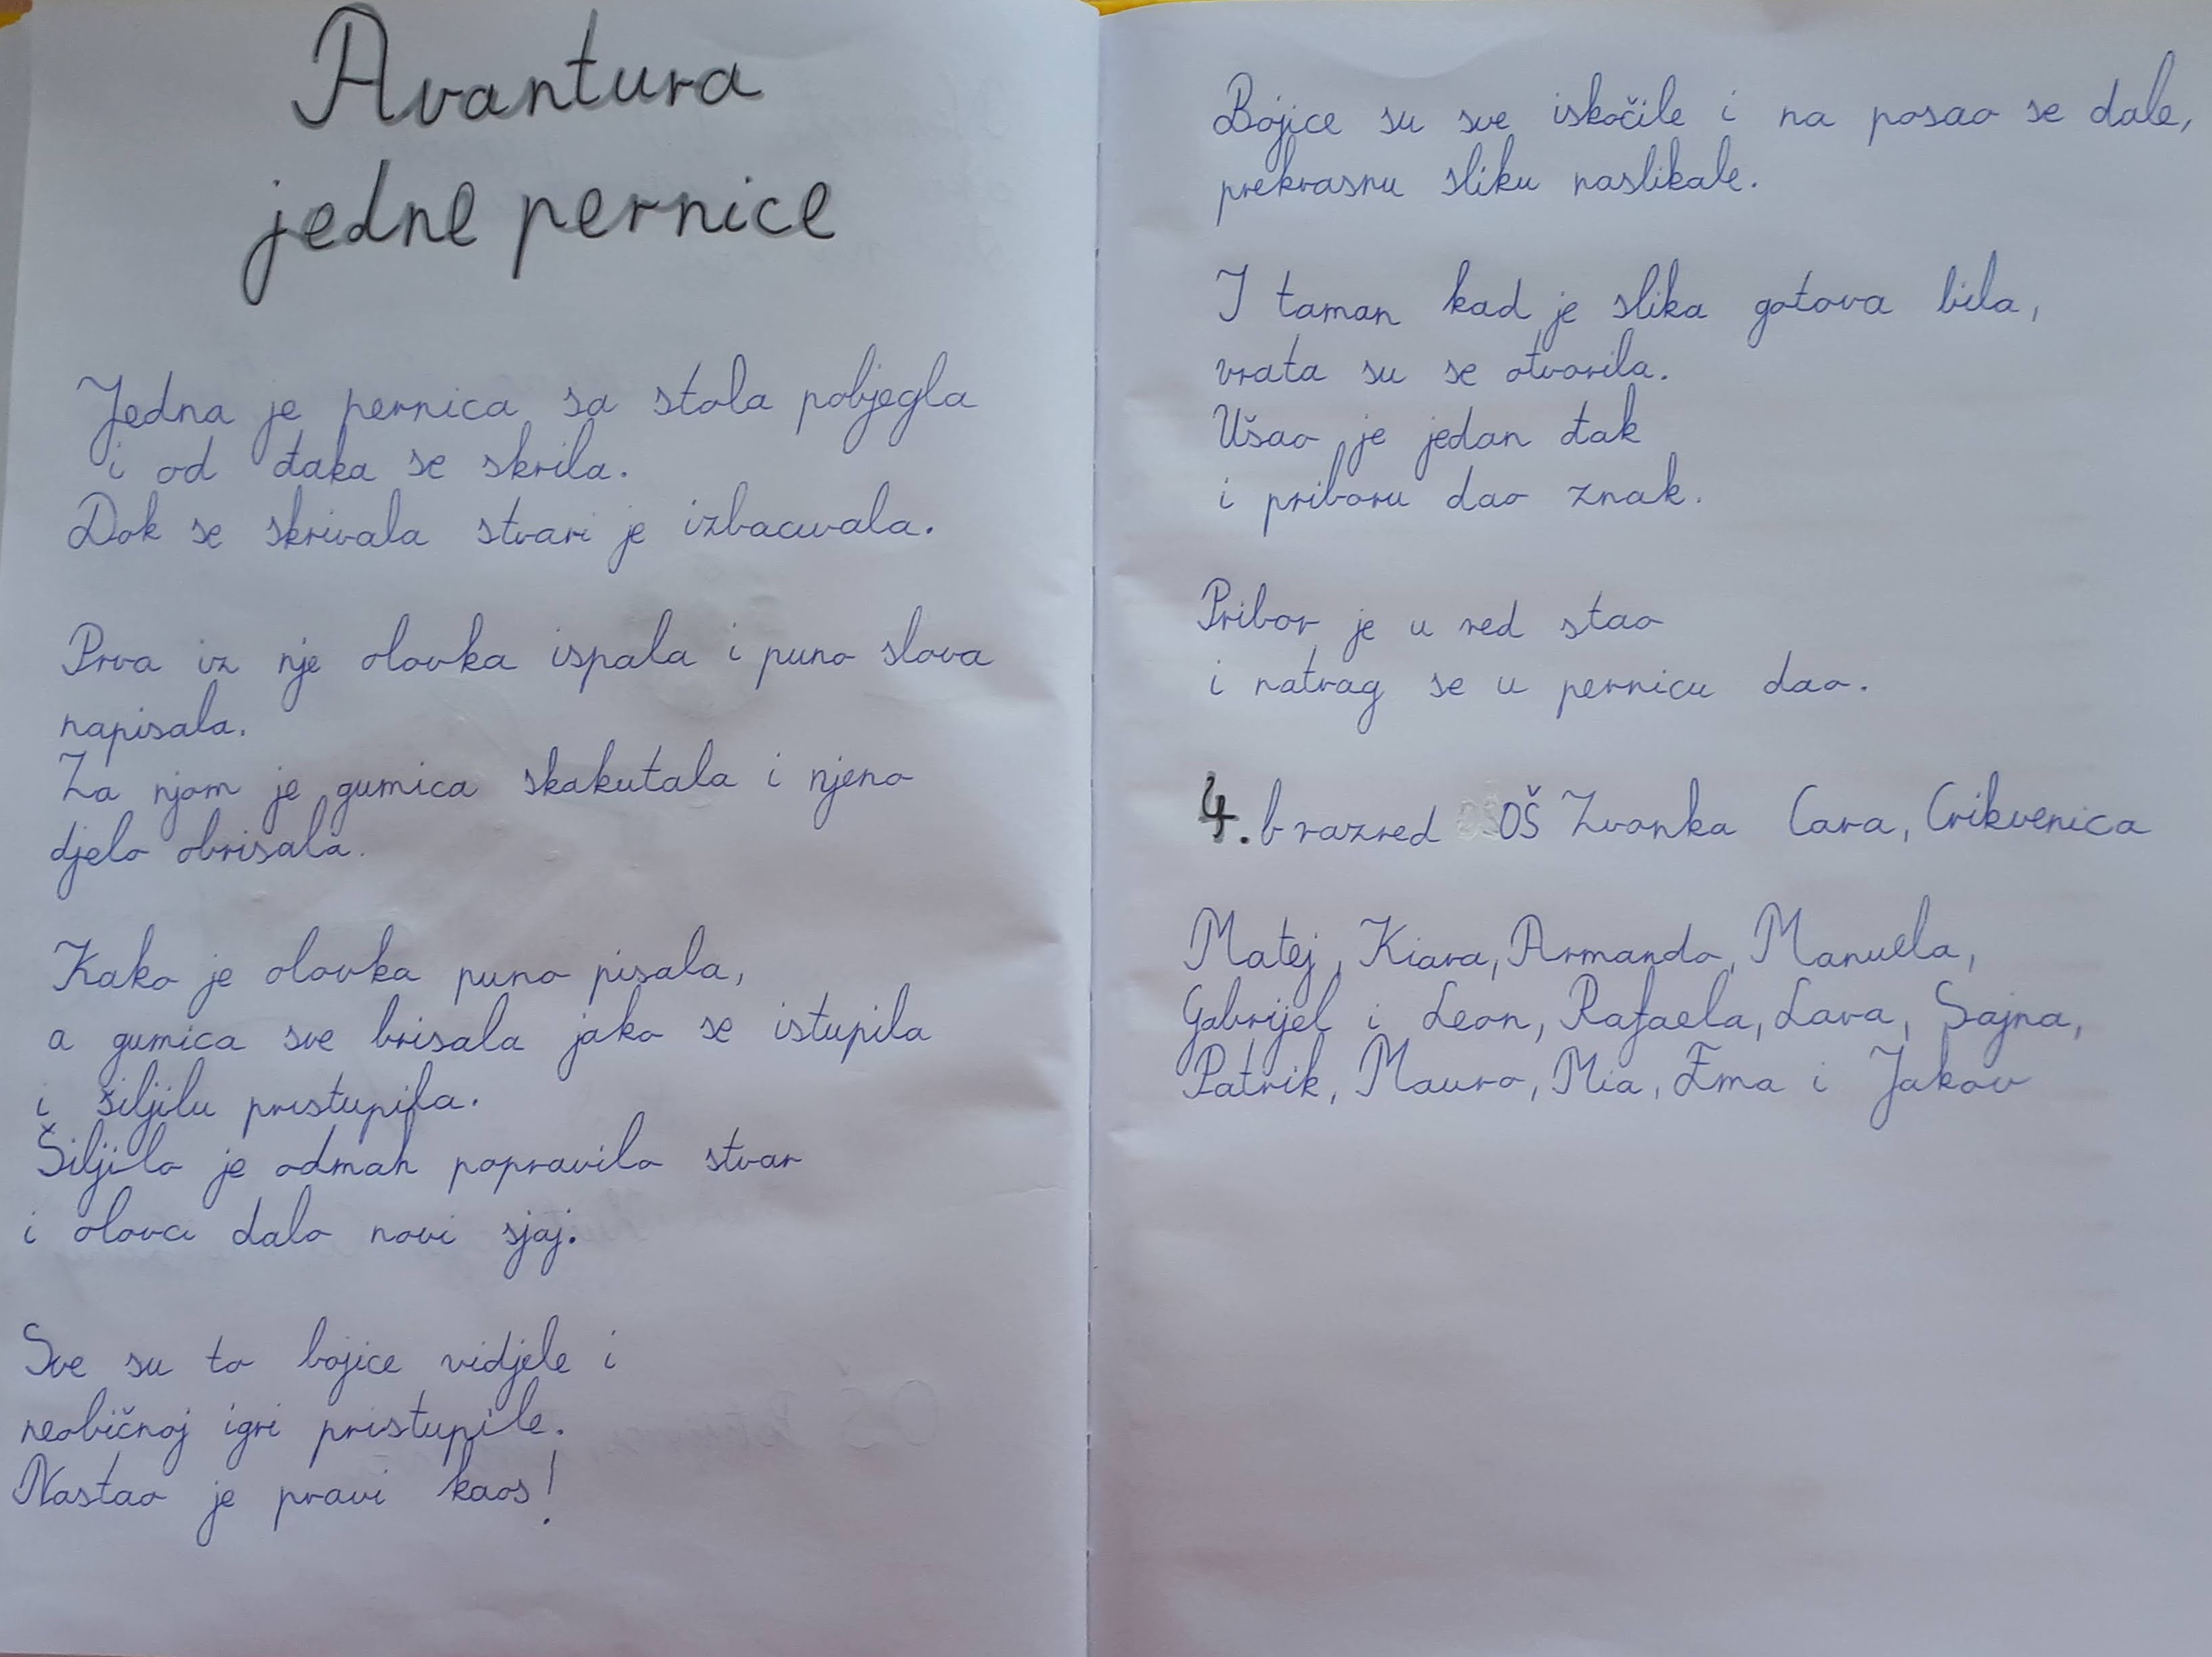 Avantura
jedne pernice
Jedna je pernica sa stola pobjegla
i od đaka se skrila.
Dok se skrivala stvari je izbacivala.
Prva iz nje olovka ispala i puno slova
napisala.
Za njom je gumica skakutala i njeno
djelo obrisala.
Kako je olovka puno pisala,
a gumica sve brisala jako se istupila
i šiljilu pristupila.
Šiljilo je odmah popravilo stvar
i olovci dalo novi sjaj.
Sve su to bojice vidjele i
neobičnoj igri pristupile.
Nastao je pravi kaos!
Bojice su sve iskočile i na posao se dale,
prekrasnu sliku naslikale.
I taman kad je slika gotova bila,
vrata su se otvorila.
Ušao je jedan đak
i priboru dao znak.
Pribor je u red stao
i natrag se u pernicu dao.
4. b razred OŠ Zvonka Cara, Crikvenica
Matej, Kiara, Armando, Manuela,
Gabrijel i Leon, Rafaela, Lara, Sajna,
Patrik, Mauro, Mia, Ema i Jakov